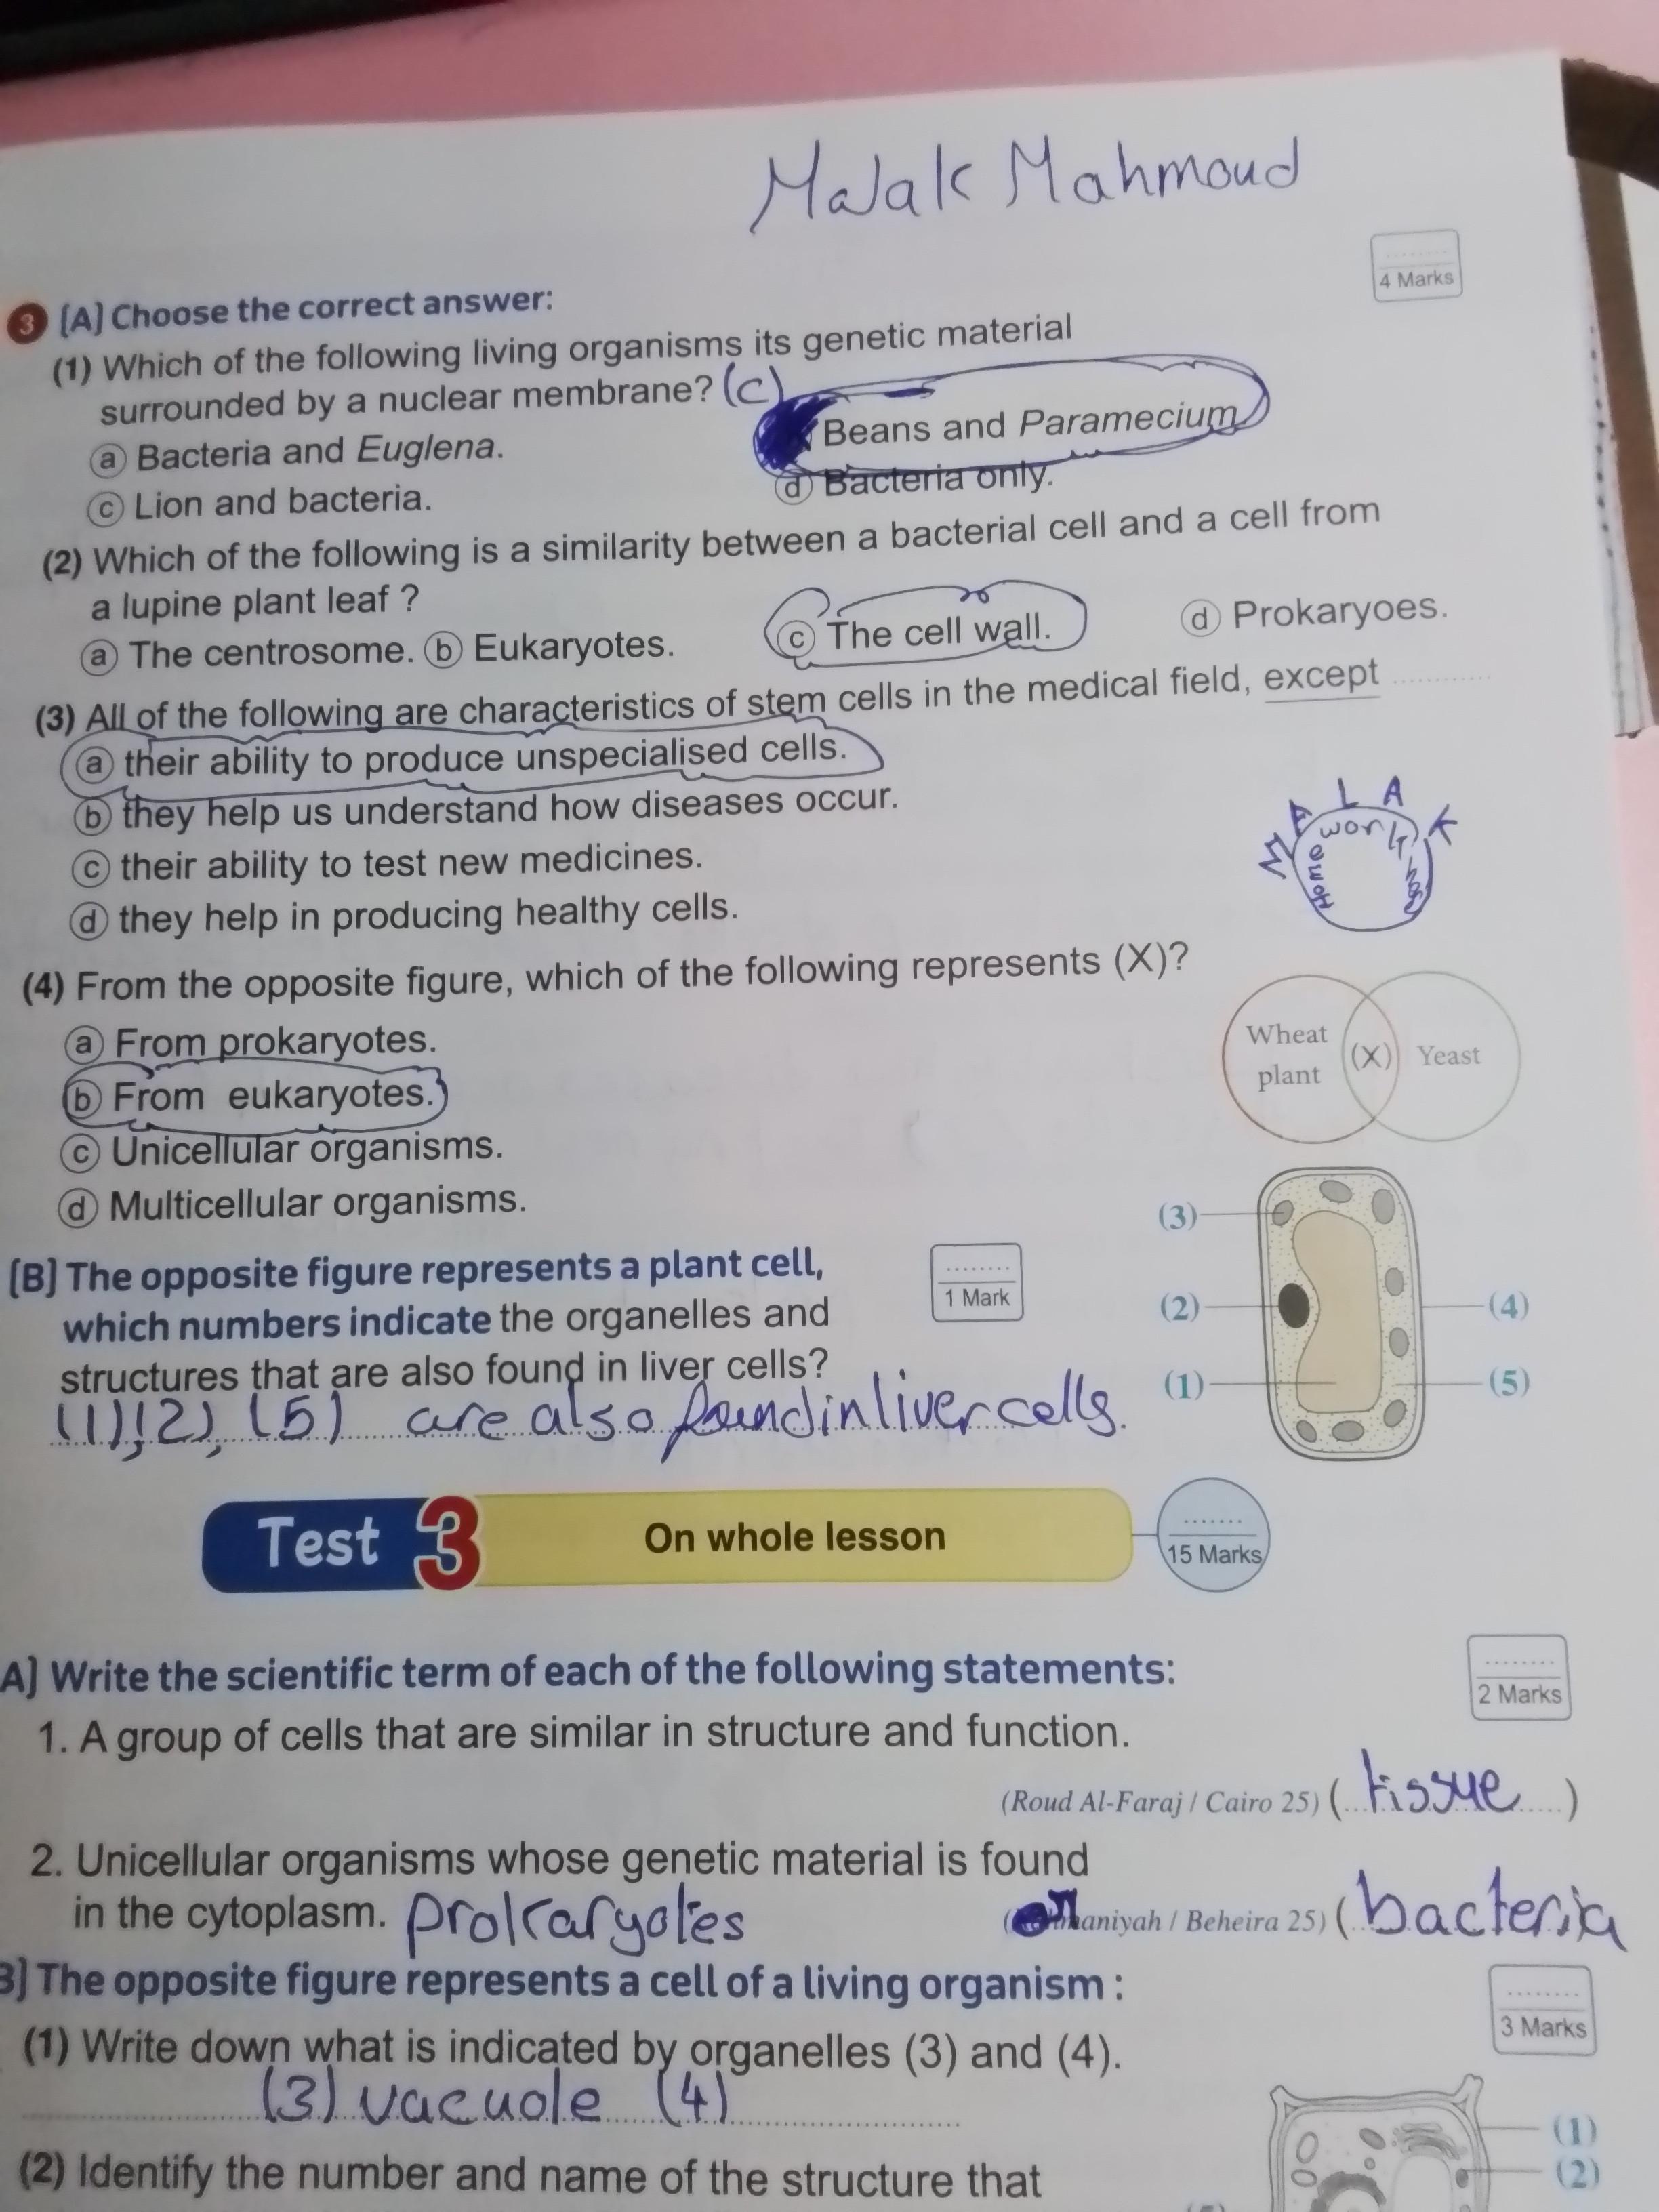 Malak Mahmoud
4 Marks
3 [A] Choose the correct answer:
(1) Which of the following living organisms its genetic material
surrounded by a nuclear membrane? (c)
a Bacteria and Euglena.
Beans and Paramecium
c Lion and bacteria.
d Bacteria only.
(2) Which of the following is a similarity between a bacterial cell and a cell from
a lupine plant leaf ?
a The centrosome. b Eukaryotes. c The cell wall. d Prokaryoes.
(3) All of the following are characteristics of stem cells in the medical field, except ............
a their ability to produce unspecialised cells.
b they help us understand how diseases occur.
c their ability to test new medicines.
d they help in producing healthy cells.
MALAK
Home work
(4) From the opposite figure, which of the following represents (X)?
a From prokaryotes.
b From eukaryotes.
c Unicellular organisms.
d Multicellular organisms.
Wheat
plant
(X)
Yeast
[B] The opposite figure represents a plant cell,
which numbers indicate the organelles and
structures that are also found in liver cells?
1 Mark
(1),(2), (5) are also found in liver cells.
(3)
(2)
(1)
(4)
(5)
Test 3 On whole lesson
15 Marks
A] Write the scientific term of each of the following statements:
2 Marks
1. A group of cells that are similar in structure and function.
(Roud Al-Faraj / Cairo 25) (tissue)
2. Unicellular organisms whose genetic material is found
in the cytoplasm. prokaryotes
maniyah / Beheira 25) (bacteria
B] The opposite figure represents a cell of a living organism :
3 Marks
(1) Write down what is indicated by organelles (3) and (4).
(3) vacuole (4)
(2) Identify the number and name of the structure that
(1)
(2)